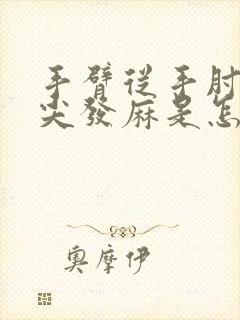 手臂從手肘
尖發麻是怎
奧摩伊